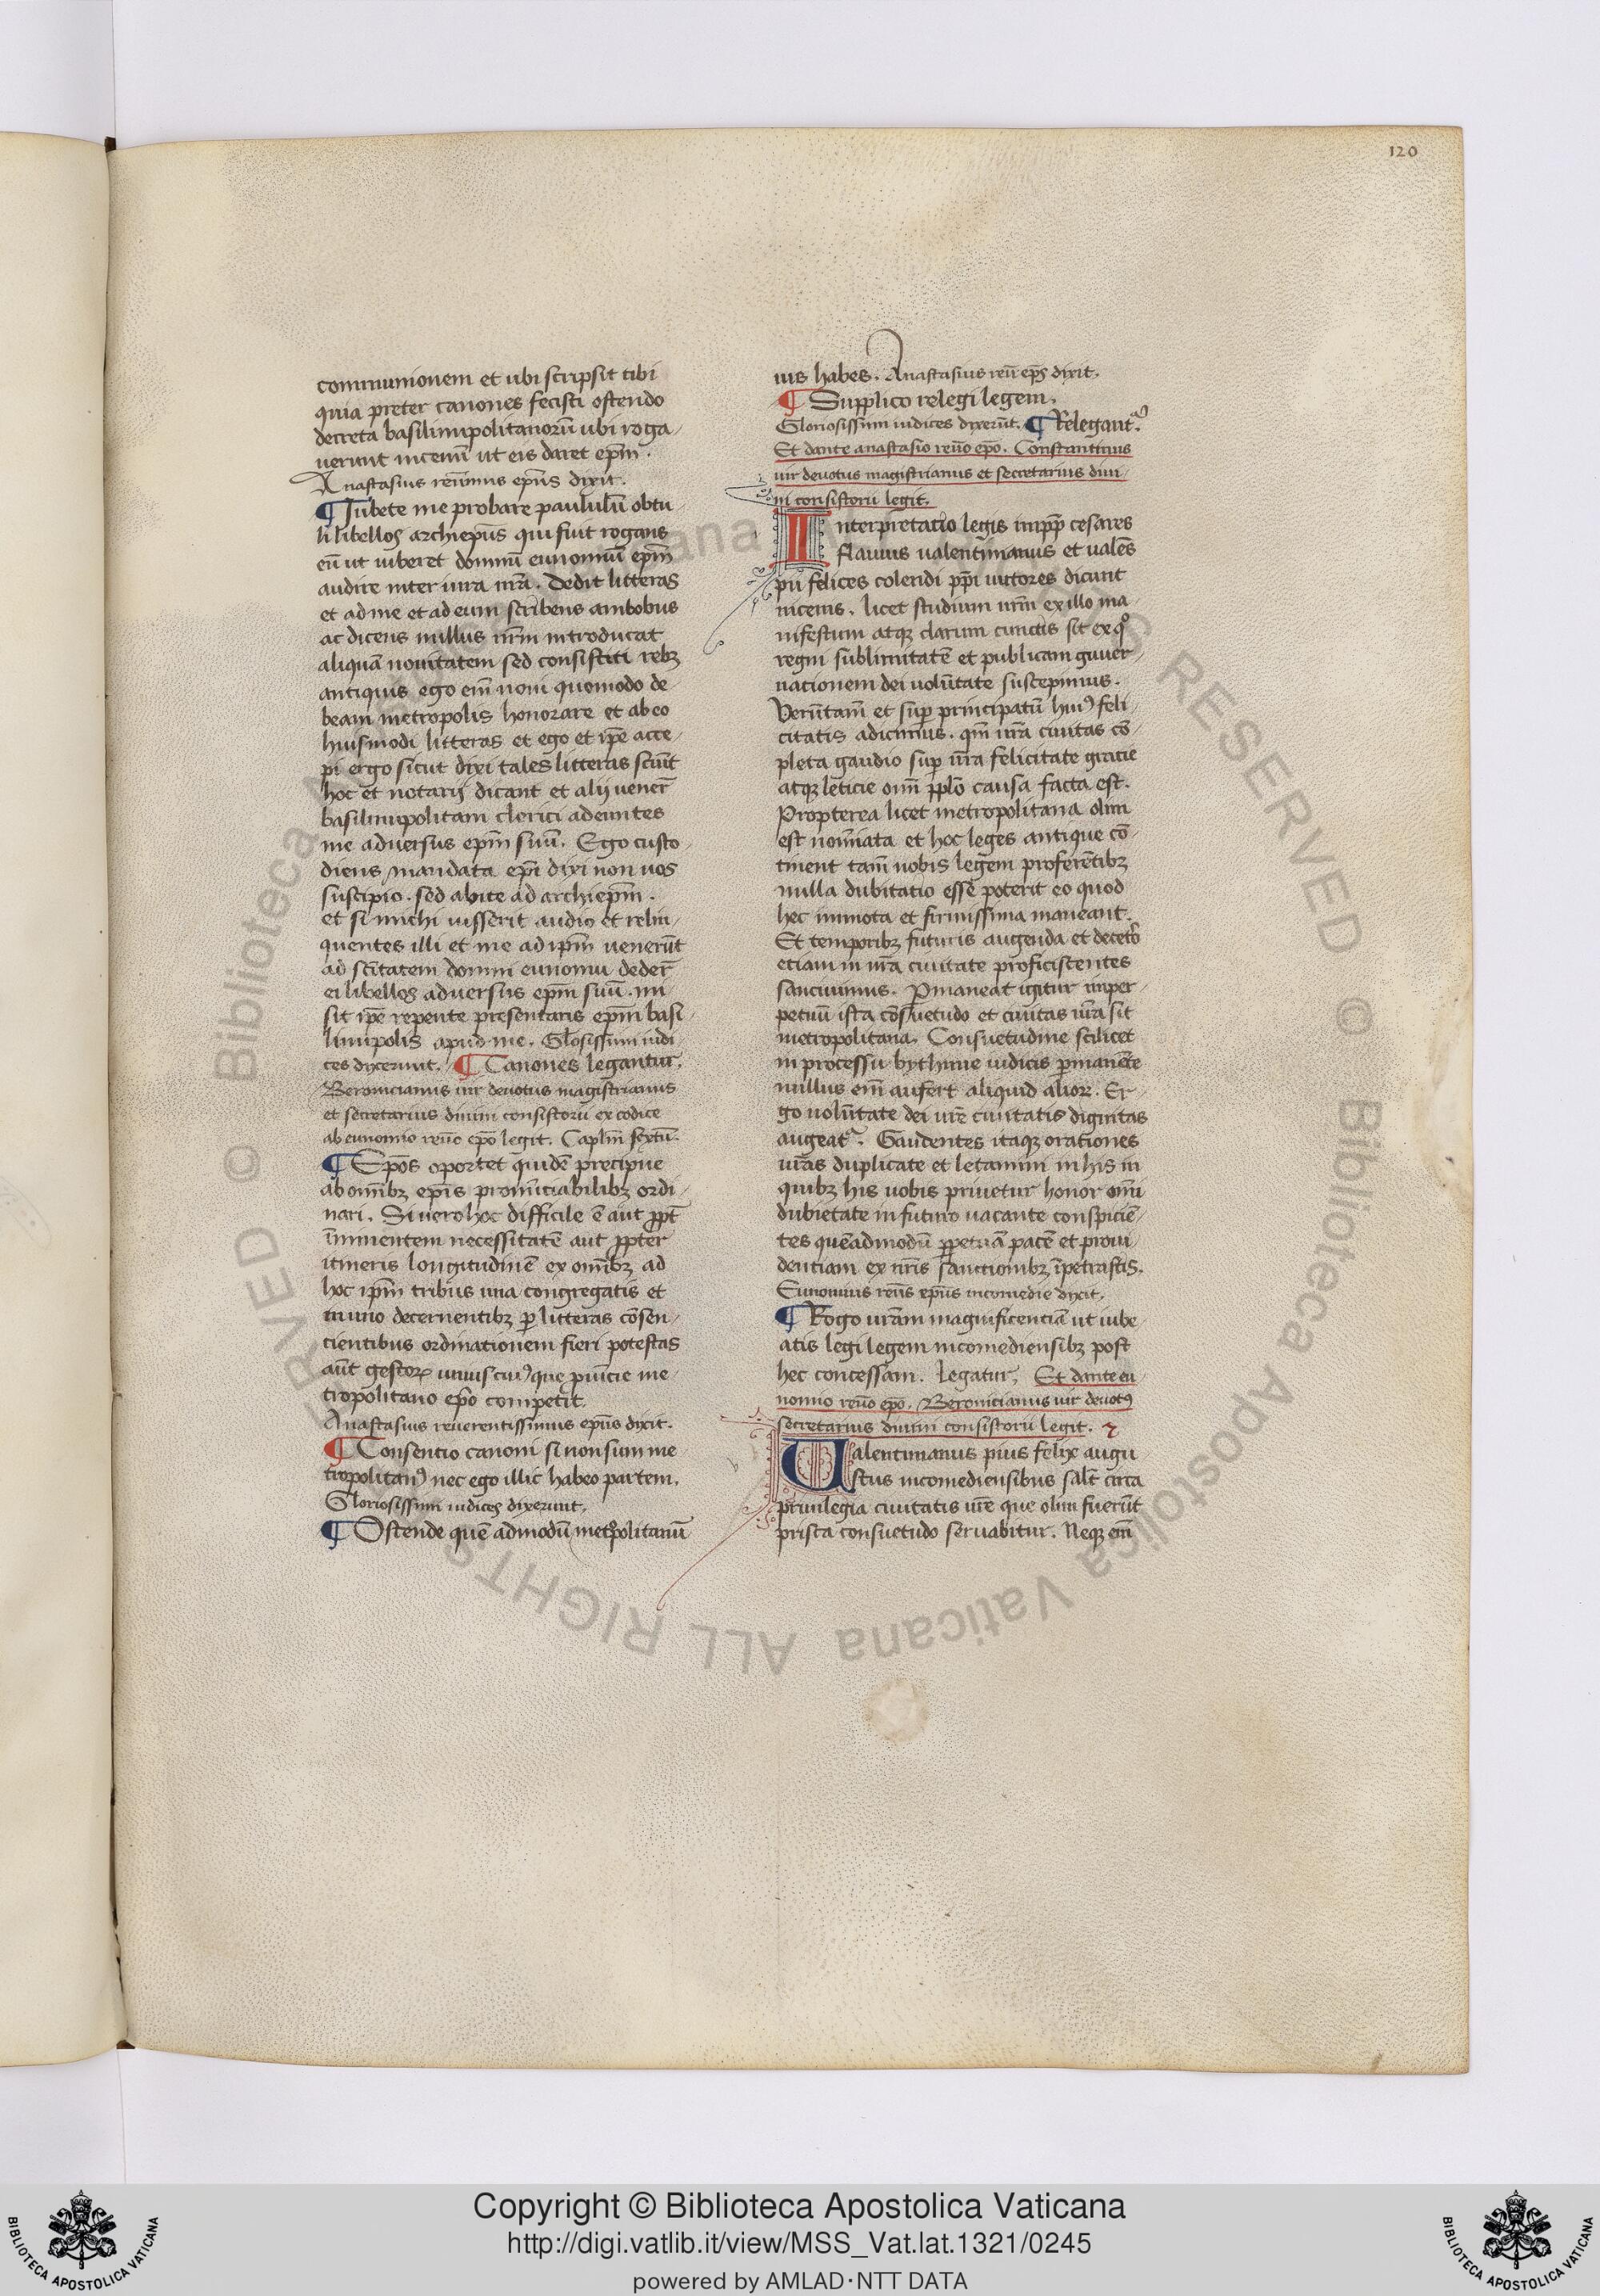 120
communionem et ubi scripsit tibi
quia preter canones fecisti ostendo
decreta basilinupolitanorū ubi roga-
uerunt incenū ut eis daret ep̄m.
Anastasius reuēmus ep̄us dixit.
¶ Iubete me probare paululū obtu-
li libellos archiep̄us qui fuit rogans
eū ut iuberet domnū eunomiū ep̄m
audire inter iura nr̄a. Dedit litteras
et ad me et ad eum scribens ambobus
ac dicens nullus nr̄m introducat
aliquā nouitatem sed consistiti rebꝫ
antiquis ego em̄ noui quomodo de-
beam metropolis honorare et ab eo
huiusmodi litteras et ego et ip̄e acce-
pi ergo sicut dixi tales litteras sciūt
hoc et notarij dicant et alij uener̄
basilinupolitam clerici adeuntes
me aduersus ep̄m suū. Ego custo-
diens mandata ep̄i dixi non uos
suscipio. sed abite ad archiep̄m.
et si michi iusserit audio et relin-
quentes illi et me ad ip̄m uenerūt
ad sc̄itatem domni eunomii deder̄
ei libellos aduersus ep̄m suū. mi-
sit ip̄e repente presentaris ep̄m basi-
linupolis apud me. Gl̄osissimi iudi-
ces dixerunt. ¶ Canones legantur.
Beronicianus uir deuotus magistrianus
et secretarius diuini consistorii ex codice
ab eunomio reuēo ep̄o legit. Capl̄m sextū.
¶ Ep̄os oportet quidē precipue
ab om̄ibꝫ ep̄is prouinciabilibꝫ ordi-
nari. Si uero hoc difficile ē aut ꝓpt̄
īminentem necessitatē aut ꝓpter
itineris longitudinē ex om̄ibꝫ ad
hoc ip̄m tribus una congregatis et
in uno decernentibꝫ ꝑ litteras cōsen-
cientibus ordinationem fieri potestas
aūt gestoꝝ uniuscuiꝰque ꝓuīcie me-
tropolitano ep̄o competit.
Anastasius reuerentissimus ep̄us dixit.
¶ Consentio canoni si non sum me-
tropolitanꝰ nec ego illic habeo partem.
Gloriosissimi iudices dixerunt.
¶ Ostende quē admodū metropolitanū
ius habes. Anastasius reuē ep̄s dixit.
¶ Supplico relegi legem.
Gloriosissimi iudices dixerūt. ¶ Relegantᷣ.
Et dante anastasio reuēo ep̄o. Constantinus
uir deuotus magistrianus et secretarius diui-
ni consistorii legit.
Interpretatio legis impp̄ cesares
flauius ualentinianus et ualēs
pii felices colendi pp̄i uictores dicunt
nicenis. licet studium nr̄m ex illo ma-
nifestum atqꝫ clarum cunctis sit ex qͦ
regni sublimitatē et publicam guuer-
nationem dei uolūtate suscepimus.
Verūtam̄ et suꝑ principatū huiꝰ feli-
citatis adicimus. qm̄ ur̄a ciuitas cō-
pleta gaudio suꝑ ur̄a felicitate gracie
atqꝫ leticie om̄i pplo causa facta est.
Propterea licet metropolitana olim
est nomīata et hoc leges antique cō-
tinent tam̄ uobis legem proferētibꝫ
nulla dubitatio esse poterit eo quod
hec inmota et firmissima maneant.
Et temporibꝫ futuris augenda et deceto
etiam in ur̄a ciuitate proficiscentes
sanciuimus. Ꝑmaneat igitur inper-
petuū ista cōsuetudo et ciuitas ur̄a sit
metropolitana. Consuetudine scilicet
in processu bythinie iudicis ꝑmanēte
nullus em̄ aufert aliquid alioꝝ. Er-
go uolūtate dei ur̄e ciuitatis dignitas
augeatᷣ. Gaudentes itaqꝫ orationes
ur̄as duplicate et letamini in his in
quibꝫ his uobis priuetur honor om̄i
dubietate in futuro uacante conspiciē-
tes quēadmodū ꝑpetuā pacē et proui-
dentiam ex nr̄is sanctionibꝫ īpetrastis.
Eunomius reuēs ep̄us nicomedie dixit.
¶ Rogo ur̄am magnificenciā ut iube-
atis legi legem nicomediensibꝫ post
hec concessam. Legatur. Et dante eu-
nomio reuēo ep̄o. Beronicianus uir deuotꝰ
secretarius diuini consistorii legit.
Ualentinianus pius felix augu
stus nicomediensibus sal̄t circa
priuilegia ciuitatis ur̄e que olim fuerūt
prisca consuetudo seruabitur. Neqꝫ em̄
Copyright © Biblioteca Apostolica Vaticana
http://digi.vatlib.it/view/MSS_Vat.lat.1321/0245
powered by AMLAD·NTT DATA
BIBLIOTECA APOSTOLICA VATICANA
BIBLIOTECA APOSTOLICA VATICANA
© Biblioteca Apostolica Vaticana ALL RIGHTS RESERVED